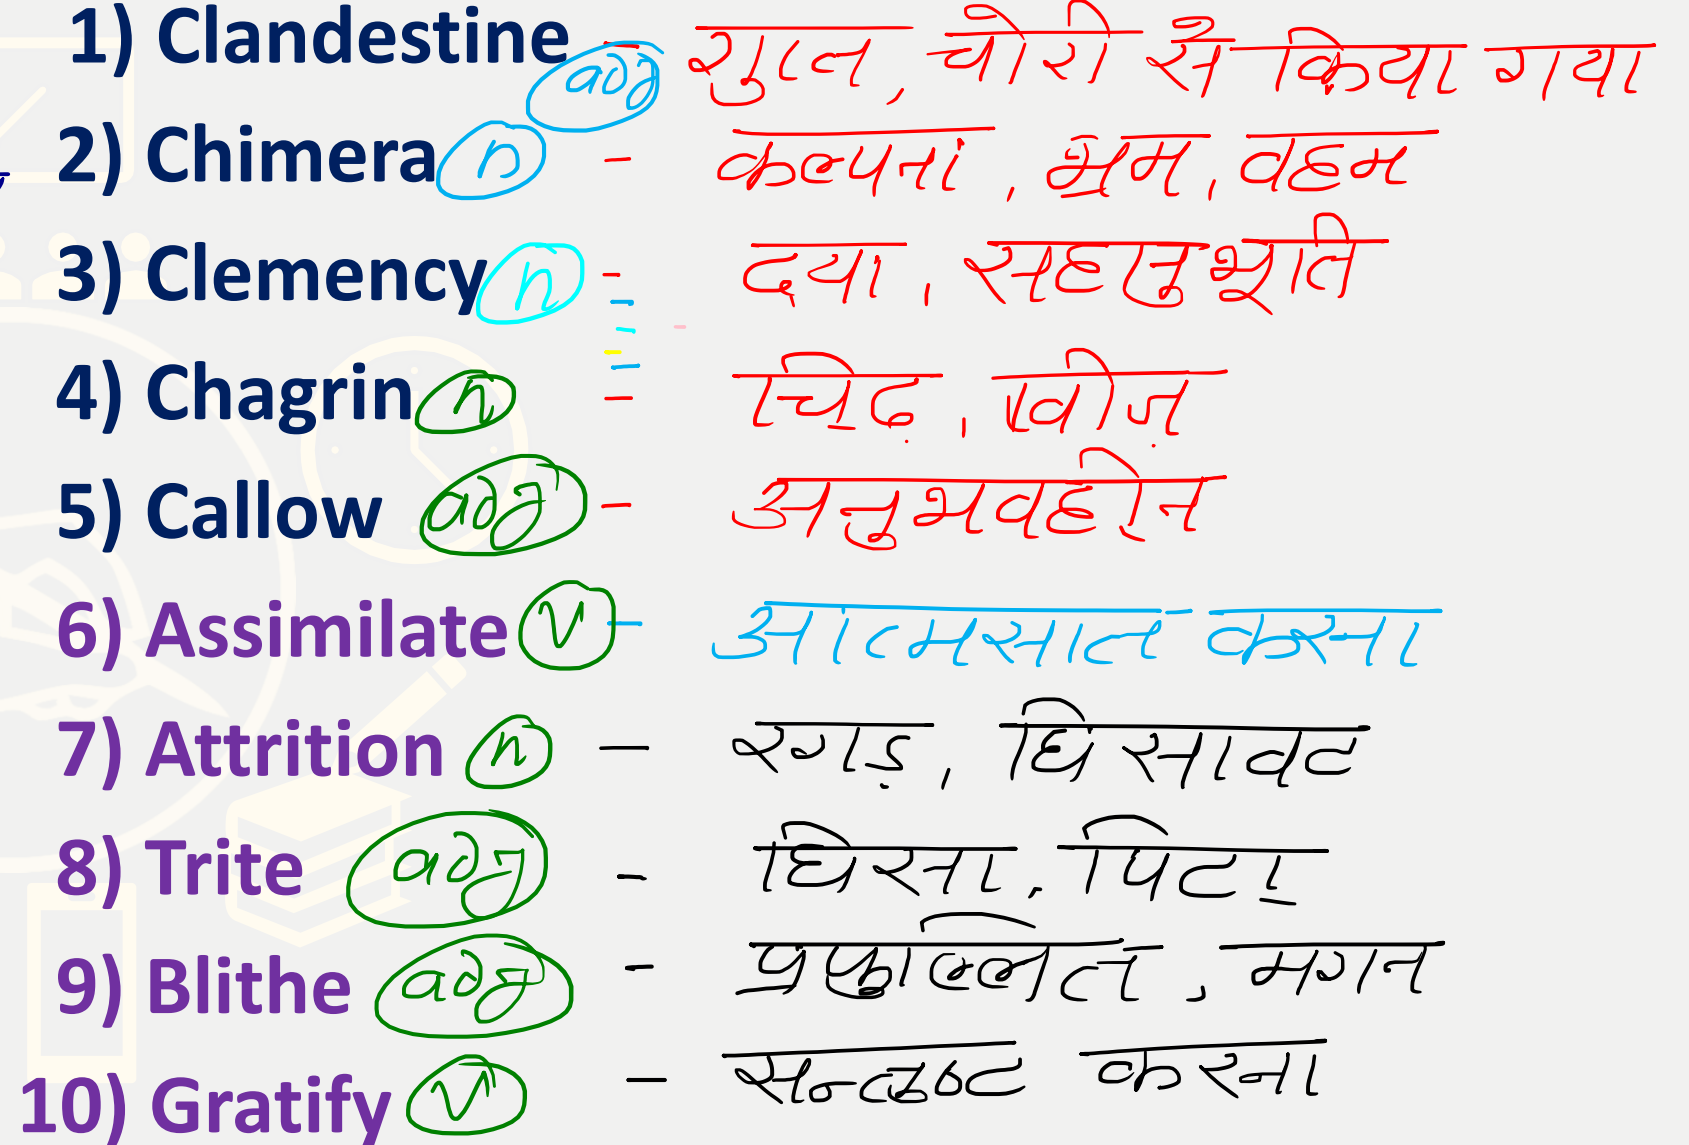 1) Clandestine adj - गुप्त, चोरी से किया गया
2) Chimera n - कल्पना, भ्रम, वहम
3) Clemency n - दया, सहानुभूति
4) Chagrin n - चिढ़, खीज़
5) Callow adj - अनुभवहीन
6) Assimilate v - आत्मसात करना
7) Attrition n - रगड़, घिसावट
8) Trite adj - घिसा, पिटा
9) Blithe adj - प्रफुल्लित, मगन
10) Gratify v - सन्तुष्ट करना